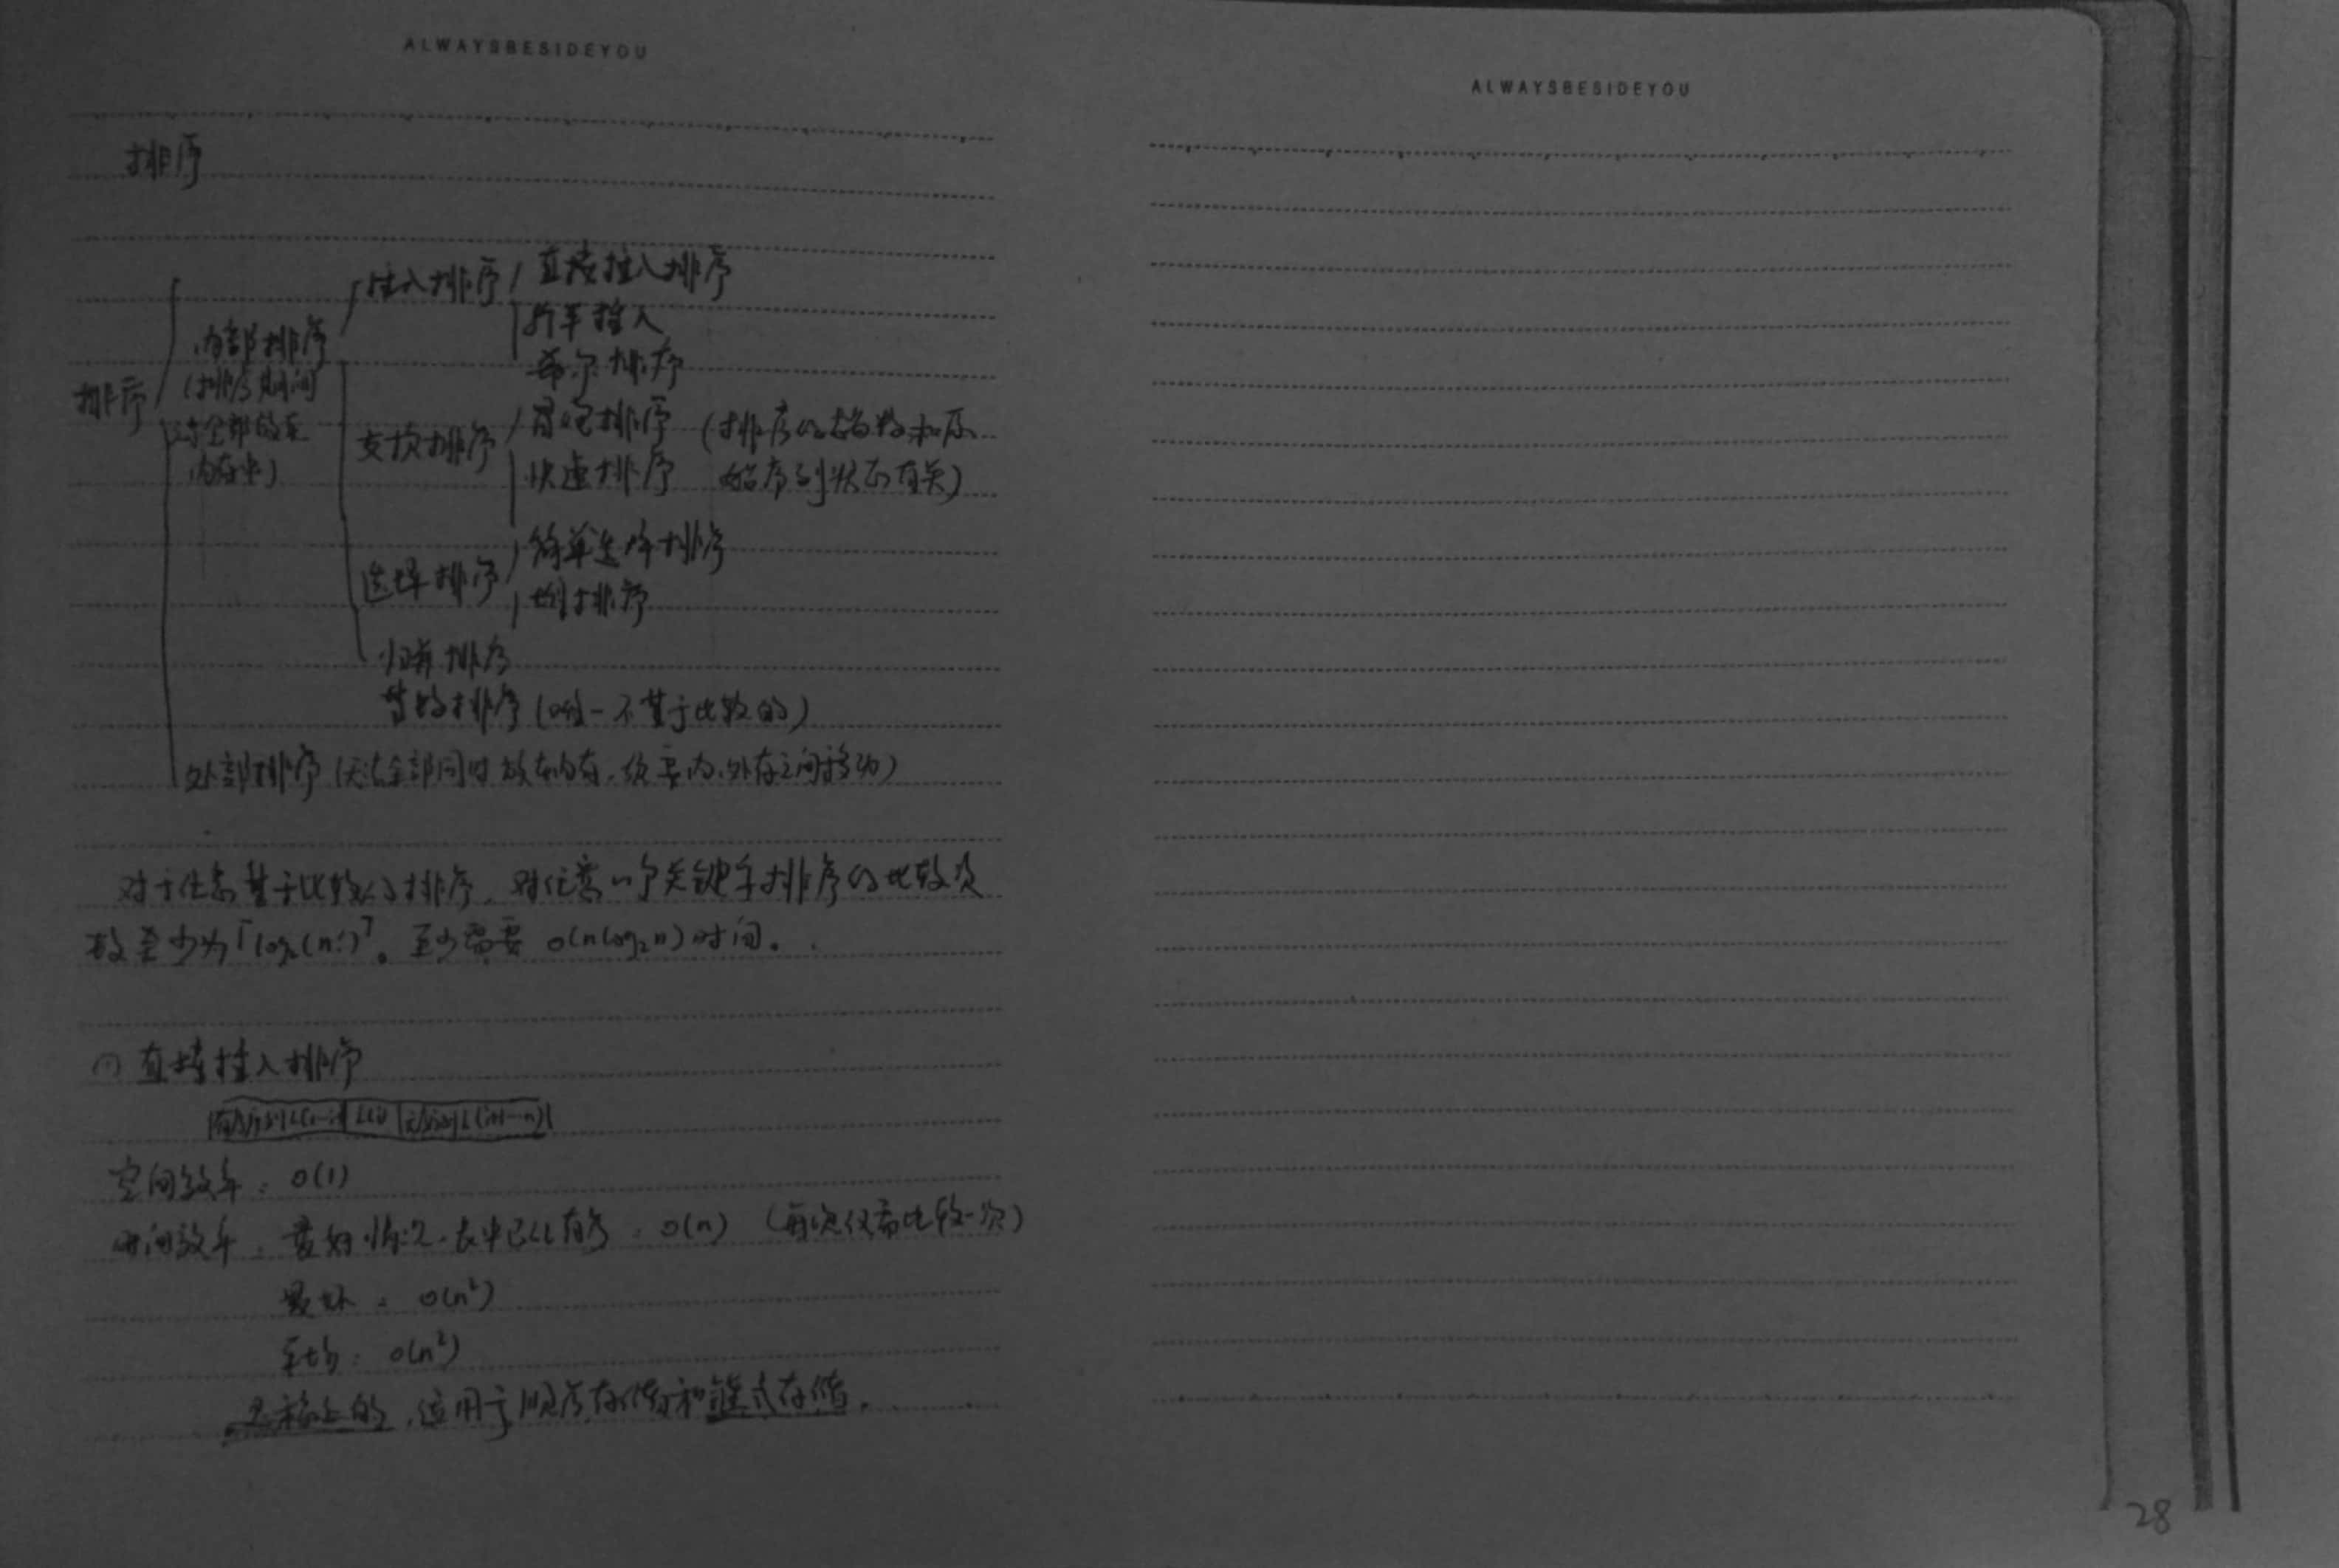 ALWAYSBESIDEYOU
排序
排序
内部排序
(排序期间
全部放在
内存中)
插入排序
直接插入排序
折半插入
希尔排序
交换排序
冒泡排序 (排序的趟数和原
快速排序 始序列状态有关)
选择排序
简单选择排序
堆排序
归并排序
基数排序 (唯一不基于比较的)
外部排序 (无法全部同时放在内存,须要内、外存之间移动)
对于任意基于比较的排序,对任意n个关键字排序的比较次
数至少为⌈log₂(n!)⌉。至少需要 O(nlog₂n)时间。
(1) 直接插入排序
有序序列L(1…i-1) L(i) 无序序列L(i+1…n)
空间效率:O(1)
时间效率:最好情况,表中已经有序,O(n) (每次仅需比较一次)
最坏:O(n²)
平均:O(n²)
是稳定的,适用于顺序存储和链式存储。
ALWAYSBESIDEYOU
28